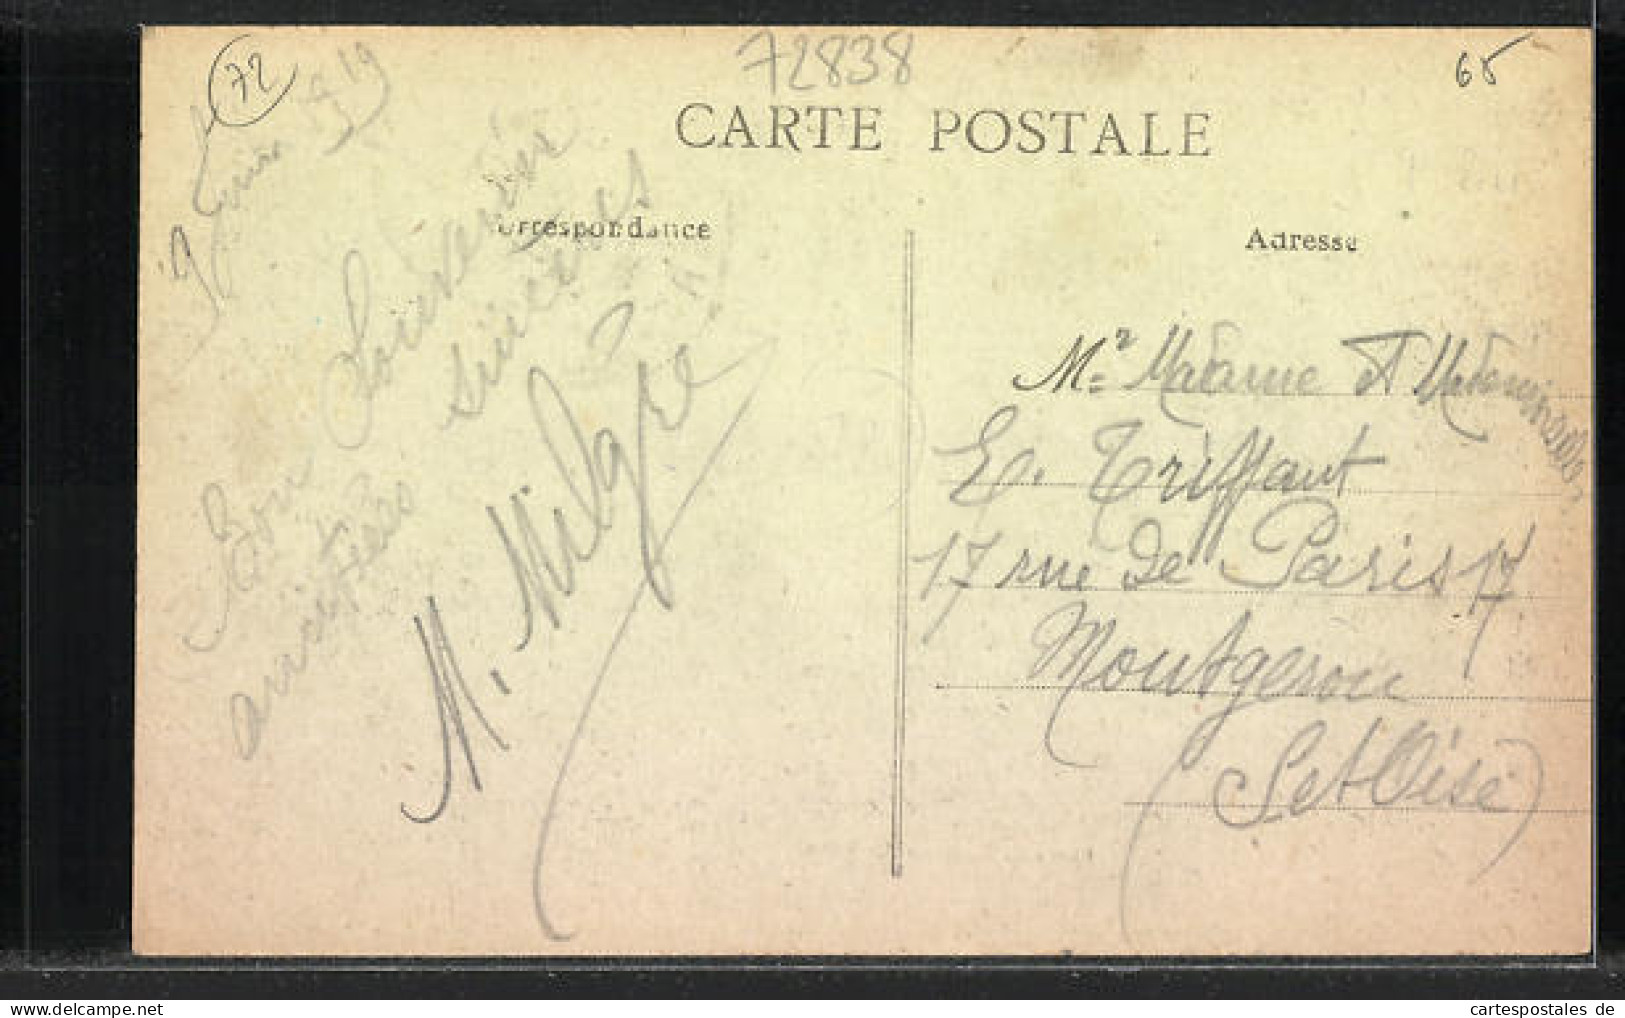 72
72838
65
CARTE POSTALE
Correspondance
Adresse
9 19
Bon Souvenir
amitiées sincères
M. Milgre
Mr Madame et Mademoiselle
E. Triffaut
17 rue de Paris 17
Montgeron
(S et Oise)
cartespostales de